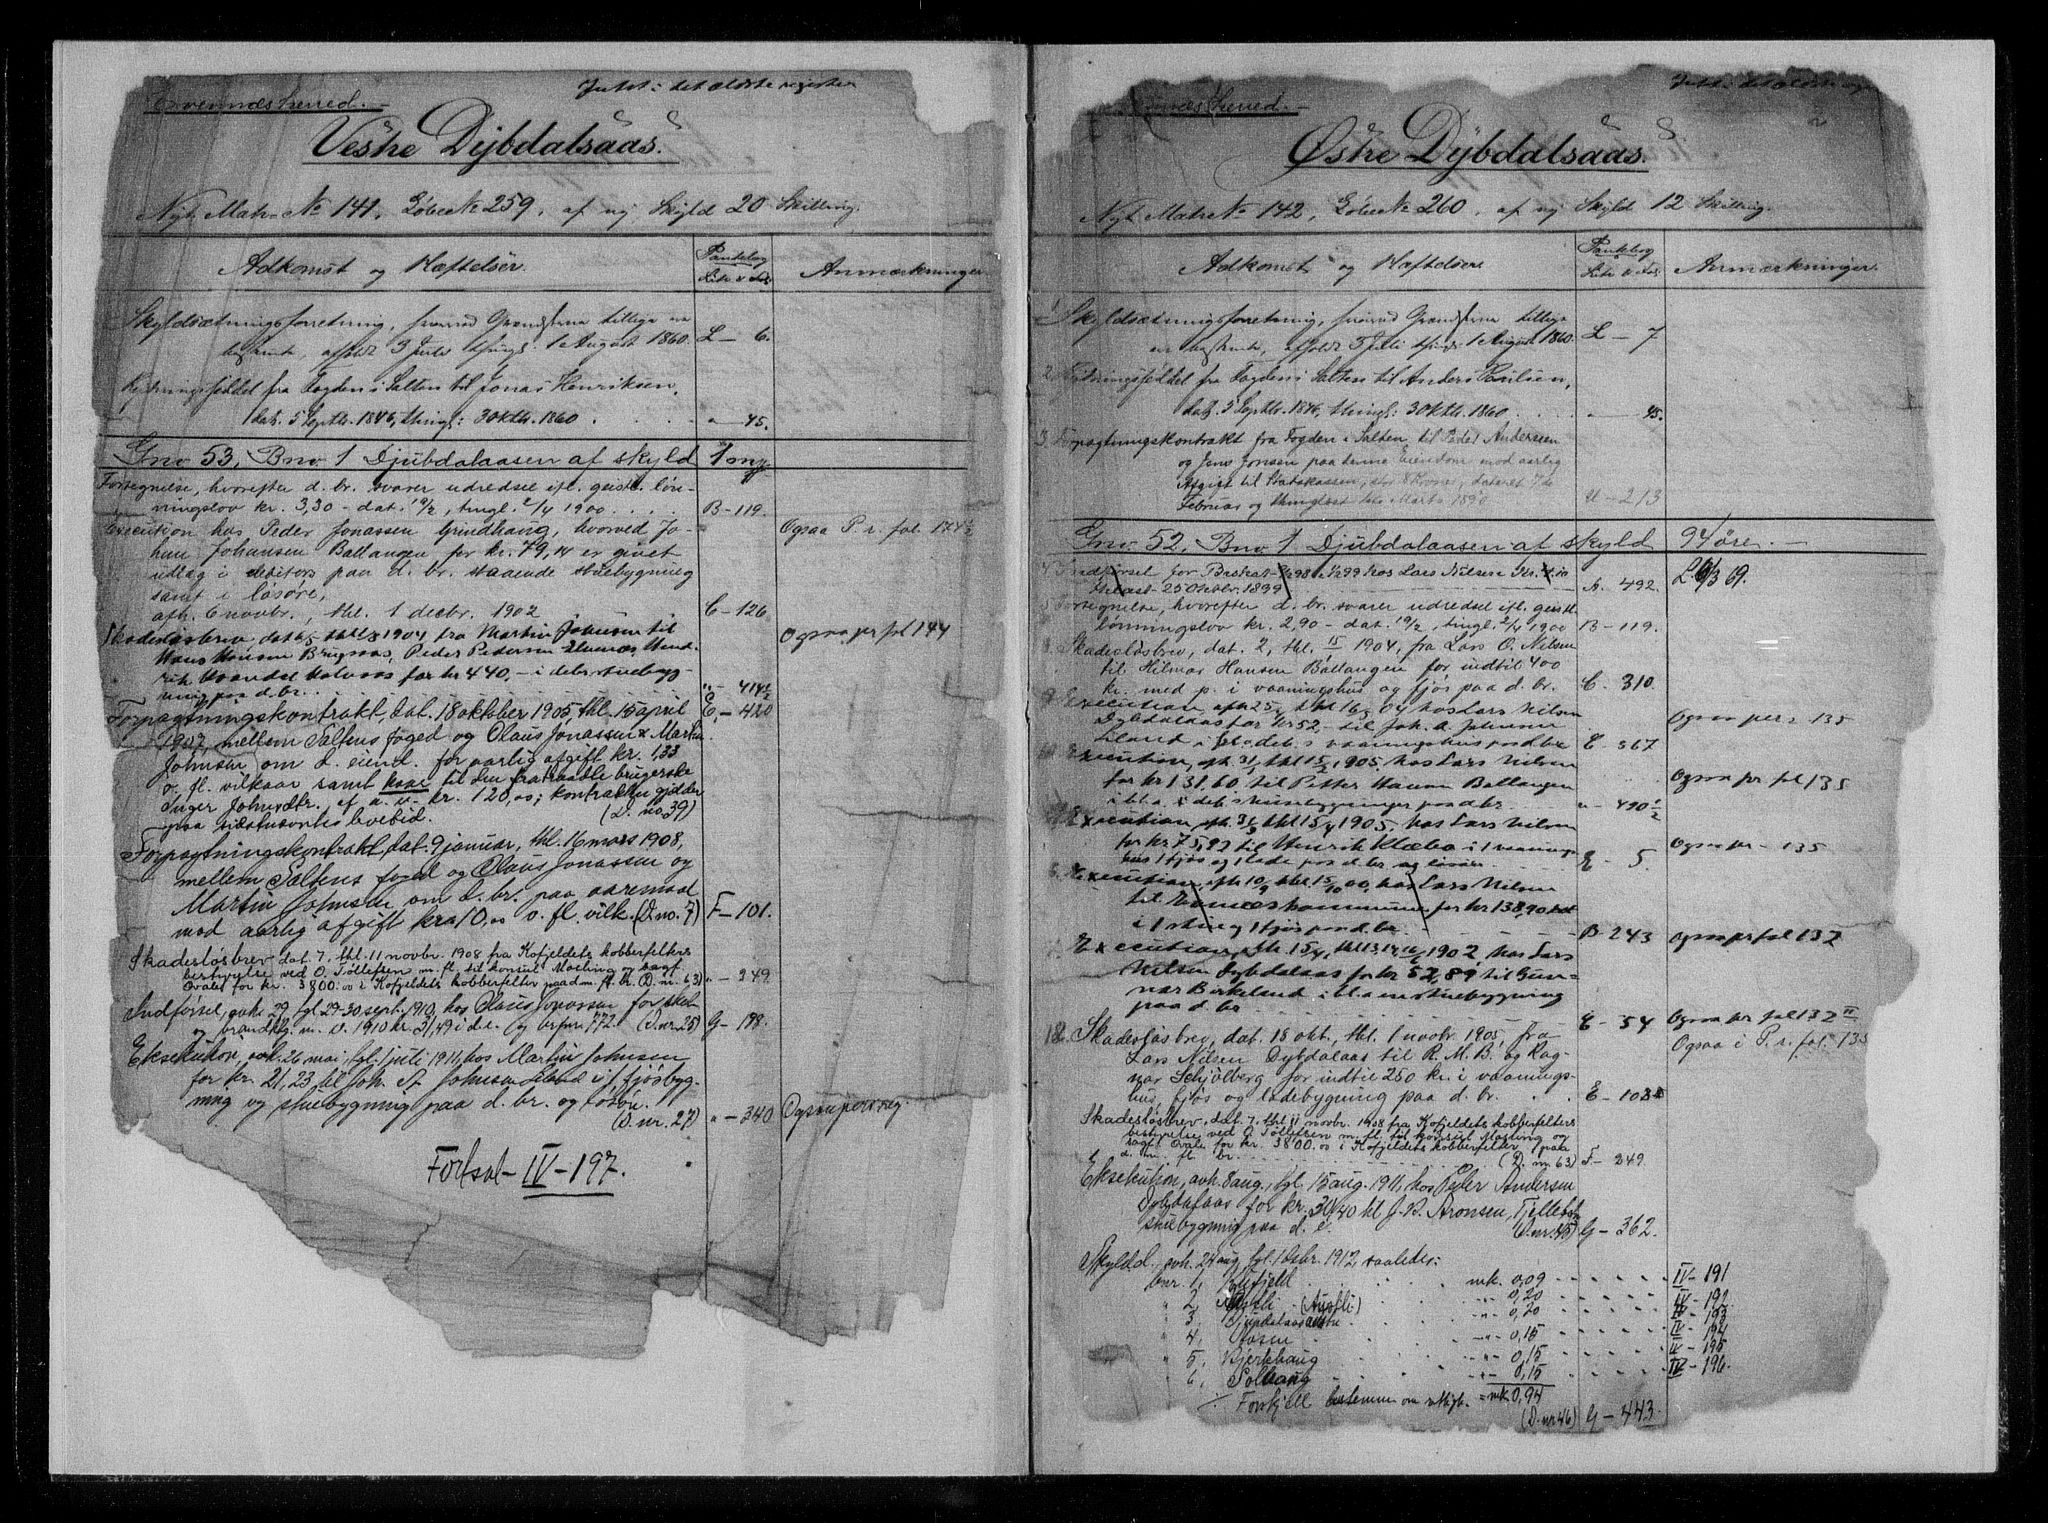 Evennæs herred.
Intet i det ældste register
Vestre Dybdalsaas.
Nyt Matr. No 141, Løbe No 259, af ny Skyld 20 Skilling.
Adkomst og Hæftelser.
Pantebog
Litr. & Fol.
Anmærkninger
Skyldsætningsforretning, hvorved Grændserne tillige ere
bestemte, afholdt 3 Juli thingl: 1 August 1860.
L - 6.
Bygningsseddel fra Fogden i Salten til Jonas Henriksen,
dat. 5 Septbr. 1846, thingl: 3 Oktbr. 1860
" 45.
Gno 53, Bno 1 Djubdalaasen af skyld 1 mrk.
Forsegnelse, hvorefter d. br. svarer udredsel ifl. geistl. løn-
ningslov kr. 3,30 - dat. 19/2, tingl. 2/4 1900
B - 119.
Execution hos Peder Jonassen Grindhaug, hvorved Jo-
han Johansen Ballangen for kr. 79,14 er givet
udlæg i debitors paa d. br. staaende stuebygning
samt i løsøre,
afh. 6 novbr., thl. 1 decbr. 1902
C - 126
Ogsaa P. r. fol. 174½
Skadesløsbrev, dat. thl. 1904 fra Martin Johnsen til
Hans Hansen Brugsaas, Peder Pedersen
for kr 440, - i debs stuebyg-
ning paa d. br.
" - 414½
Ogsaa pr fol 144
Forpagtningskontrakt, dat. 18 oktober 1905, thl. 15 april
1907, mellem Saltens foged og Claus Jonassen & Martin
Johnsen om d. eiend. for aarlig afgift kr. 1,33
o. fl. vilkaar samt til den fratraadte brugerske
Inger Johnsdtr. af a. v. kr. 120,00; kontrakten gjelder
paa sidstnævntes levetid. (D. no 39)
E. - 420
Forpagtningskontrakt, dat. 9 januar, thl. 16 mars 1908,
mellem Saltens foged og Claus Jonassen og
Martin Johnsen om d. br. paa aaremaal
mod aarlig afgift kr. 10,00 o. fl. vilk. (D. no. 7)
F - 101.
Skadesløsbrev dat. 7. thl. 11 novbr. 1908 fra Kofjeldets kobberfelters
bestyrelse ved O. Tøllefsen m. fl. til konsul Mosling og sagf.
Ovale for kr. 3800:00 i Kofjeldets kobberfelter paa d. m. fl. br. (D. n. 63)
" - 249.
Indførsel, avh. 29, tgl. 29-30 sept. 1910, hos Claus Jonassen for skat
og brandktg. m. v. 1910 kr. 31,49 i d. e. og brfnr. 772. (D. nr. 25)
G - 198.
Eksekution, avh. 26 mai, tgl. 1 juli 1911, hos Martin Johnsen
for kr. 21,23 til Joh. A. Johnsen Liland i fjøsbyg-
ning og stuebygning paa d. br. og løsøre.
(D. nr. 27)
" - 340
Ogsaa persreg.
Fortsat - IV - 197.
Evennæs herred. -
Intet i det ældste reg
Østre Dybdalsaas.
Nyt Matr No 142, Løbe No 260, af ny Skyld 12 Skilling.
Adkomst og Hæftelser
Pantebog
Litr. & Fol.
Anmærkninger.
1 Skyldsætningsforretning, hvorved Grændserne tillige
ere bestemte, afholdt 3 Juli thingl: 1 August 1860.
L - 7
2 Bygningsseddel fra Fogden i Salten til Anders Poulsen,
dat. 5 Septbr. 1846, thingl: 3 Oktbr. 1860
" 45.
3 Forpagtningskontrakt fra Fogden i Salten til Peder Andersen
og Jens Jonsen paa denne Eiendom mod aarlig
Afgift til Statskassen, stor 8 Kroner, dateret 7de
Februar og thinglæst Marts 1890
U - 213
Gno 52, Bno 1 Djubdalaasen af skyld 94 øre. -
4 Indførsel for Barskat 98 - 99 hos Lars Nilsen
thlæst 25 Oktbr. 1899
A. - 492.
L. 9/3 69.
5 Forsegnelse, hvorefter d. br. svarer udredsel ifl. geistl.
lønningslov kr. 2,90 - dat. 19/2, tingl. 2/4 1900
B - 119.
8. Skadesløsbrev, dat. 2, thl. 15 1904, fra Lars O. Nilsen
til Hilmar Hansen Ballangen for indtil 400
kr. med p. i vaaningshus og fjøs paa d. br.
C. - 310.
9 Execution, afh. 25, thl 16/5 04 hos Lars Nilsen
Dybdalaas for kr 52 - til Joh. A. Johnsen
Liland i debs vaaningshus paa d br
C. - 367
Ogsaa per 135
10 Execution, afh. 31/1 thl 15/2 1905, hos Lars Nilsen
for kr 131,60 til Petter Hansen Ballangen
i bl. a. i deb. stuebygninger paa d br.
" - 490½
Ogsaa pr fol 135
11 Execution, afh. 31/3 thl 15/4 1905, hos Lars Nilsen
for kr 75,92 til Henrik Klæbo i 1 vaanings-
hus 1 fjøs og 1 lade paa d. br. og løsøre
E - 5.
Ogsaa pr - 135
6. Execution, afh 10/9 thl 15/10 00, hos Lars Nilsen
til Evenæs kommune for kr 138,90
i 1 stue og 1 fjøs paa d. br.
B - 243
Ogsaa pr fol 132
Execution, afh. 15/4, thl 1902, hos Lars
Nilsen Dybdalaas for kr 52,89 til Gun-
nar Birkeland i bl. a en stuebygning
paa d br
C - 54
Ogsaa pr fol 132
12 Skadesløsbrev, dat. 18 okt., thl. 1 novbr. 1905, fra
Lars Nilsen Dybdalaas til R. M. B. og Rag-
nar Schjølberg for indtil 250 kr. i vaanings-
hus, fjøs og ladebygning paa d. br.
E - 108
Ogsaa i P. r. fol. 135
Skadesløsbrev, dat. 7. thl 11 novbr. 1908 fra Kofjeldets kobberfelters
bestyrelse ved O. Tøllefsen m. fl. til konsul Mosling og
sagf. Ovale for kr. 3800.00 i Kofjeldets kobberfelter, paa
d. m. fl. br. (D. n. 63)
F - 249.
Eksekution, avh. 8 aug., tgl. 15 aug. 1911, hos Peder Andersen
Dybdalaas for kr. 30,40 til J. B. Aronsen, Fjelldal
stuebygning paa d. e. (D. nr. 45)
G - 362.
Skyldd. avh. 24 aug. tgl. 1 1912, saaledes:
bnr. 1, fjeld mk. 0,09 IV - 191
" 2, (Austli) " - 0,20 IV - 192
" 3, Djupdalsaas østre " - 0,20 IV - 193
" 4, Aasen " - 0,15 IV - 194
" 5, Bjerkhaug " - 0,15 IV - 195
" 6, Solhaug " - 0,15 IV - 196.
Forskjell bestemm om = mk. 0,94
(D. nr 46) G - 443.